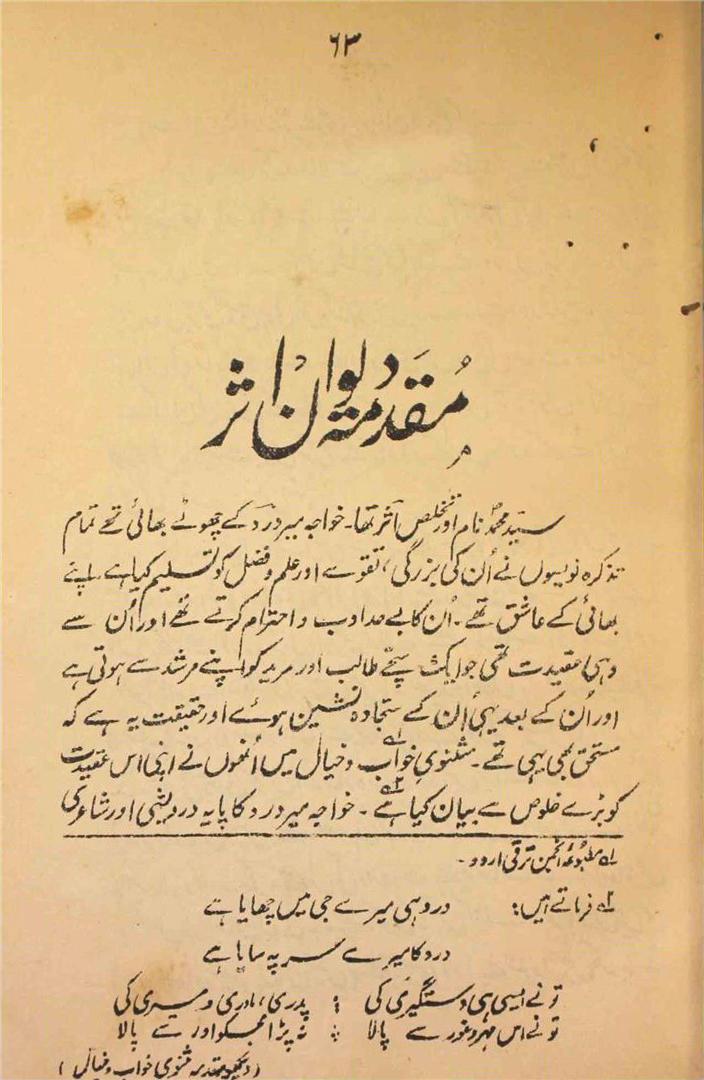 ۶۳
مُقدمۂ دیوانِ اثر
سید محمدؐ نام اور تخلص اثر تھا۔ خواجہ میر درد کے چھوٹے بھائی تھے تمام
تذکرہ نویسوں نے اُن کی بزرگی، تقوے اور علم و فضل کو تسلیم کیا ہے۔ اپنے
بھائی کے عاشق تھے۔ اُن کا بے حد ادب و احترام کرتے تھے اور اُن سے
وہی عقیدت تھی جو ایک سچّے طالب اور مرید کو اپنے مرشد سے ہوتی ہے
اور اُن کے بعد یہی اُن کے سجادہ نشین ہوئے اور حقیقت یہ ہے کہ
مستحق بھی یہی تھے۔ مثنوی خواب و خیال ۱؎ میں اُنھوں نے اپنی اس عقیدت
کو بڑے خلوص سے بیان کیا ہے ۲؎۔ خواجہ میر درد کا پایہ درویشی اور شاعری
۱؎ مطبوعۂ انجمن ترقی اردو۔
۲؎ فرماتے ہیں: درد ہی میرے جی میں چھایا ہے
درد کا میرے سر پہ سایا ہے
تو نے ایسی ہی دستگیری کی ؛ پدری، مادری و میری کی
تو نے اس مہر و غور سے پالا ؛ نہ پڑا مجکو اور سے پالا
(دیکھو مقدمہ مثنوی خواب و خیال)